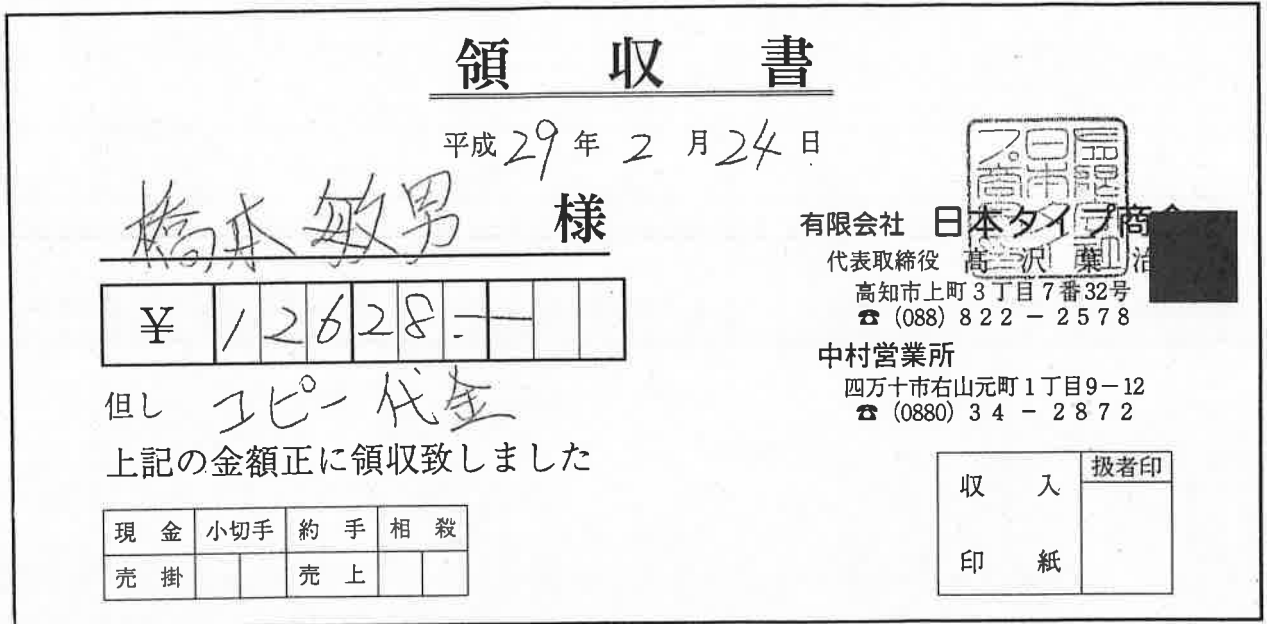 領収書
平成29年2月24日
橋本敏男 様
¥12628.-
但し コピー代金
上記の金額正に領収致しました
現金 小切手 約手 相殺
売掛 売上
有限会社 日本タイプ商会
代表取締役 髙沢葉治
高知市上町3丁目7番32号
☎ (088) 822-2578
中村営業所
四万十市右山元町1丁目9-12
☎ (0880) 34-2872
収入 扱者印
印紙